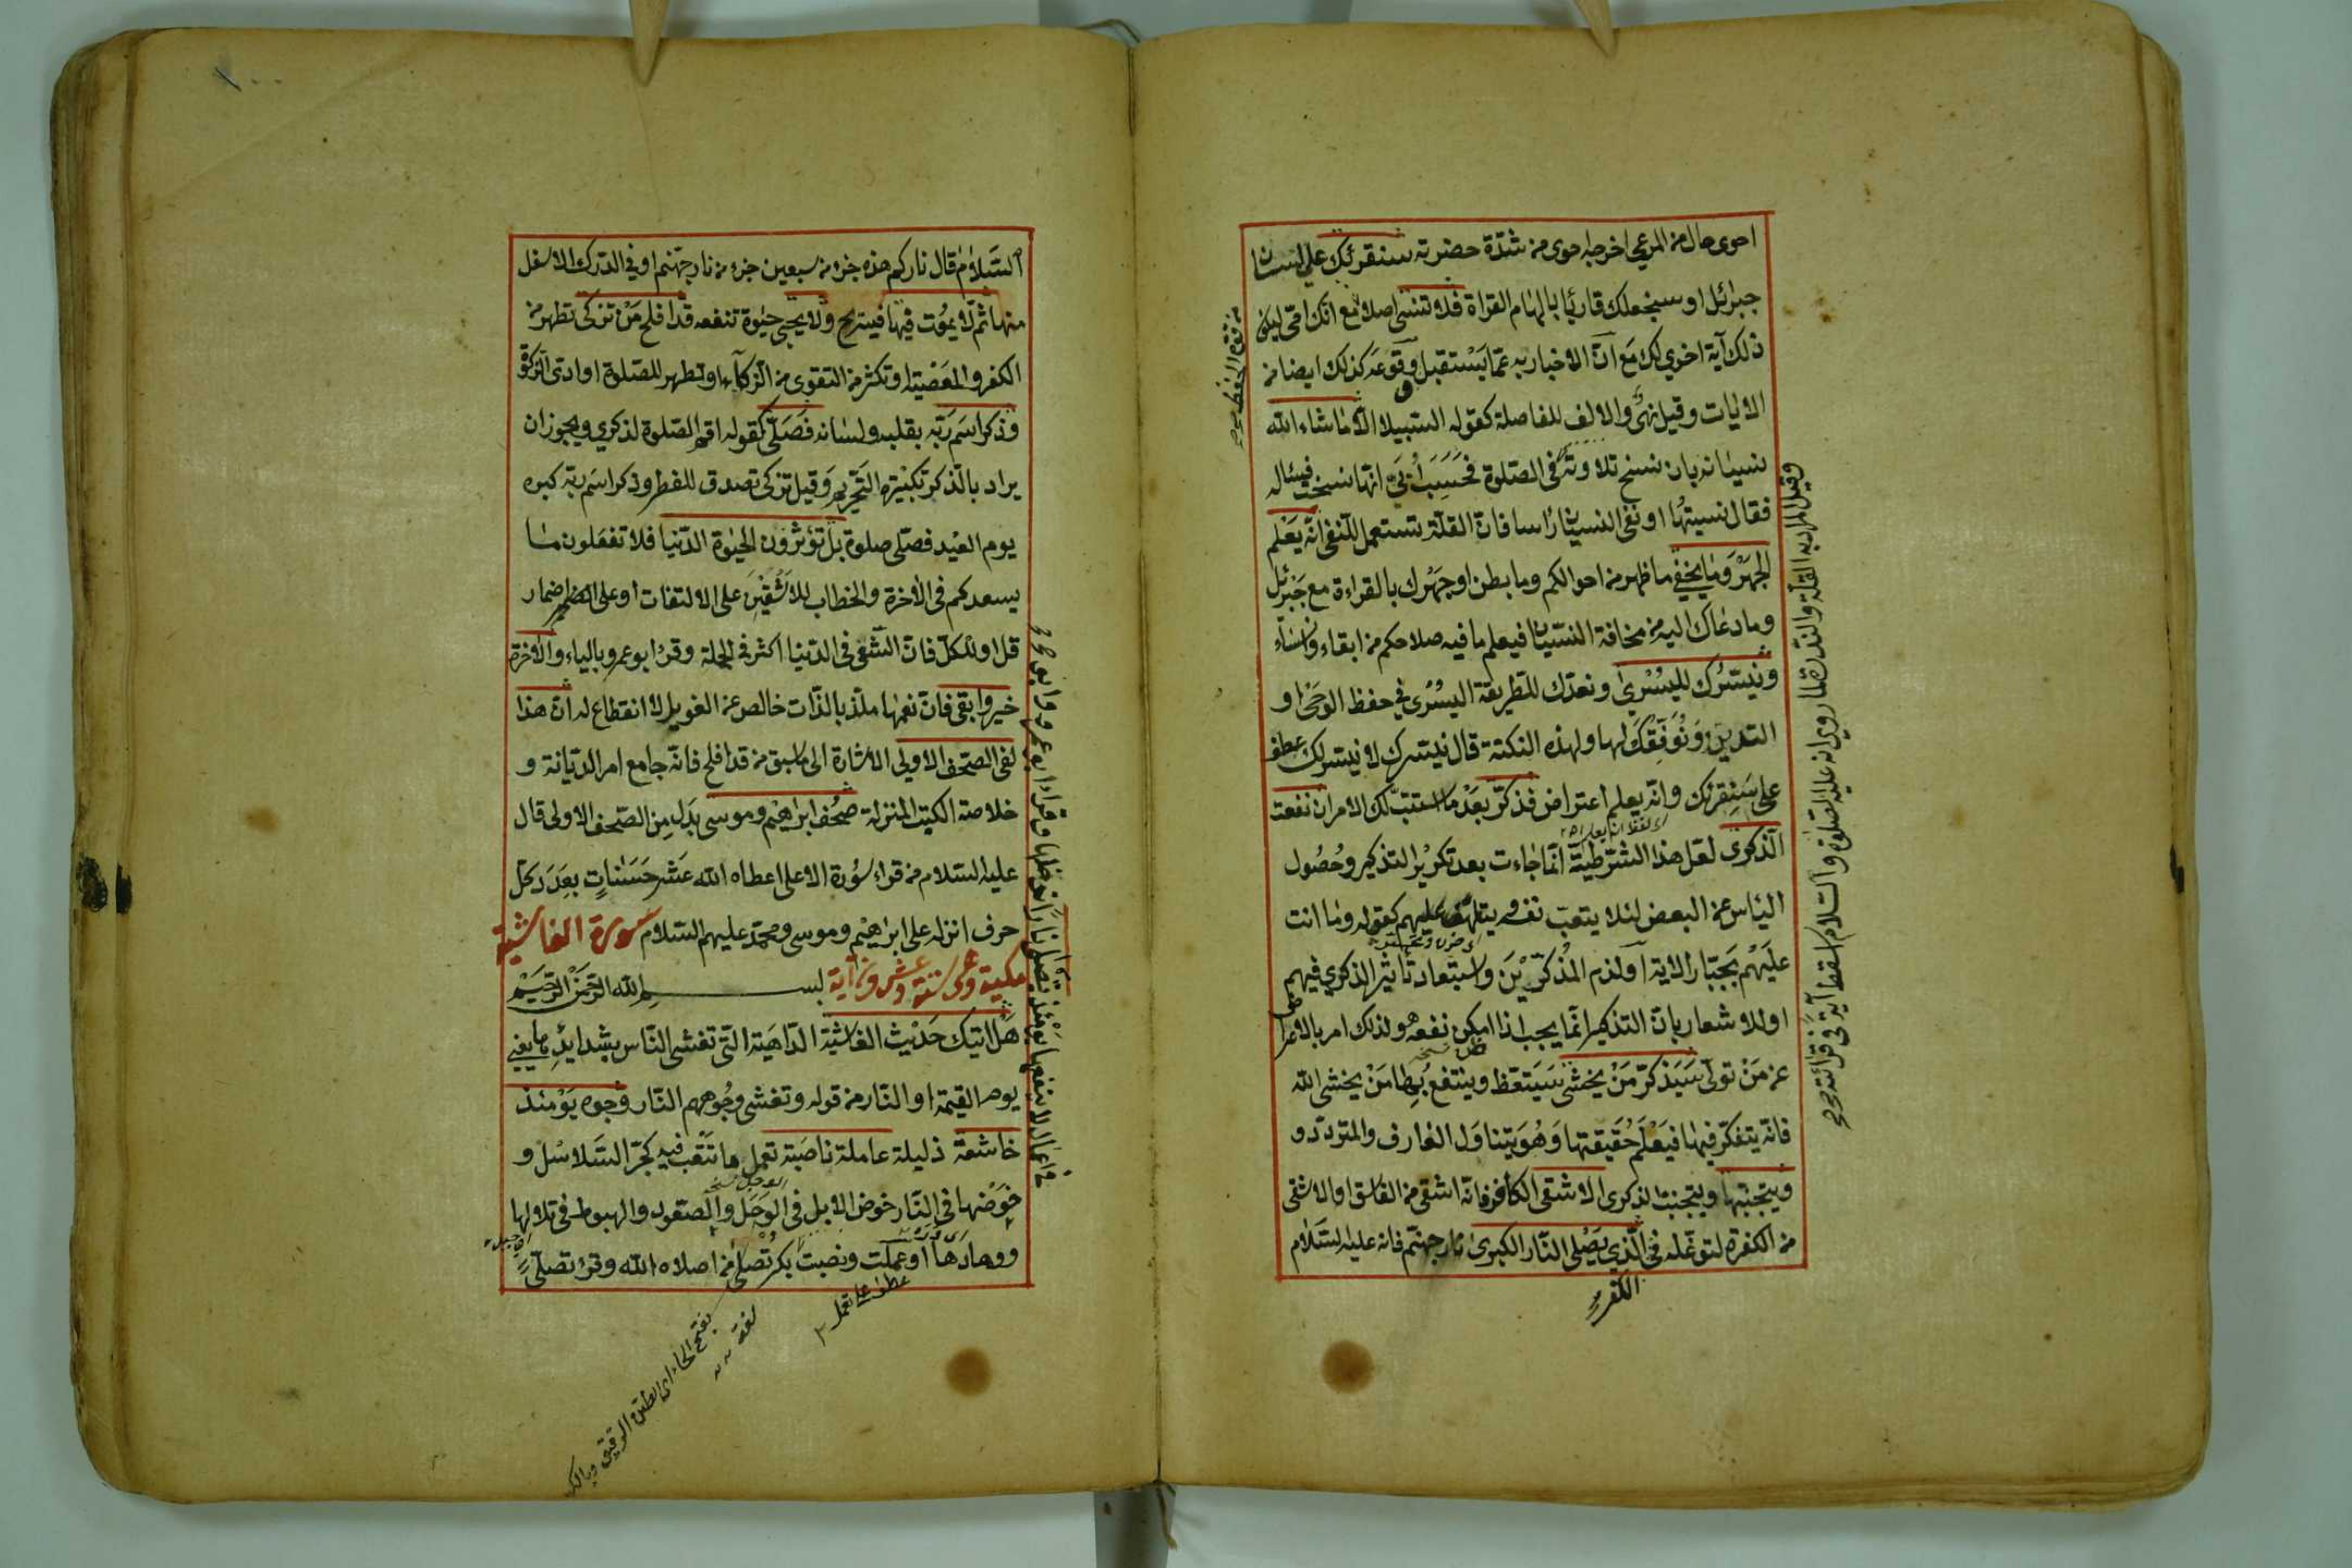 احوى حال من المرعى اخرجه احوى من شدة خضرته سنقرئك على لسان
جبرائيل او سنجعلك قاريًا بالهام القراة فلا تنسى اصلا مع انك امي ليكون
ذلك آية اخرى لك مع ان الاخبار به عما يستقبل ووقوعه كذلك ايضا من
الايات وقيل نهى والالف للفاصلة كقوله السبيلا الا ما شاء الله
نسيانه بان نسخ تلاوته في الصلوة فحسب ابي انها نسخت فسئاله
فقال نسيتها او نفى النسيان راسا فان القلة تستعمل للنفى انه يعلم
الجهر وما يخفى ما ظهر من احوالكم وما بطن او جهرك بالقراءة مع جبرئيل
وما دعاك اليه من مخافة النسيان فيعلم ما فيه صلاحكم من ابقاء وانساء
ونيسرك لليسرى ونعدك للطريقة اليسرى في حفظ الوحى او
التدين ونوفقك لها ولهذه النكتة قال نيسرك لا نيسر لك عطف
على سنقرئك وانه يعلم اعتراض فذكر بعد ما استتب لك الامر ان نفعت
الذكرى لعل هذا الشرطية انما جاءت بعد تكرير التذكير وحصول
الياس عن البعض لئلا يتعب نفسه ويتلهف عليهم كقوله وما انت
عليهم بجبار الاية او لذم المذكرين واستبعاد تاثير الذكرى فيهم
او للاشعار بان التذكير انما يجب اذا امكن نفعه ولذلك امر بالاعراض
عن من تولى سيذكر من يخشى سيتعظ وينتفع بها من يخشى الله
فانه يتفكر فيها فيعلم حقيقتها وهو يتناول العارف والمتردد و
ويتجنبها ويتجنب الذكرى الاشقى الكافر فانه اشقى من الفاسق او الاشقى
من الكفرة لتوغله في الذي يصلى النار الكبرى نار جهنم فانه عليه السلام
الكفر
وقيل المراد به القلة والندرة لما روي انه عليه الصلوة والسلام اسقط آية في قرائته
السلام قال ناركم هذه جزء من سبعين جزء من نار جهنم او في الدرك الاسفل
منها ثم لا يموت فيها فيستريح ولا يحيى حيوة تنفعه قد افلح من تزكى تطهر من
الكفر والمعصية او تكثر من التقوى من الزكاء او تطهر للصلوة او ادى الزكوة
وذكر اسم ربه بقلبه ولسانه فصلى كقوله اقم الصلوة لذكري ويجوز ان
يراد بالذكر تكبيرة التحريم وقيل تزكى تصدق للفطر وذكر اسم ربه كبره
يوم العيد فصلى صلوة بل تؤثرون الحيوة الدنيا فلا تفعلون ما
يسعدكم في الاخرة والخطاب للاشقين على الالتفات او على اضمار
قل او للكل فان السعى في الدنيا اكثر في الجملة وقرء ابو عمرو بالياء والاخرة
خير وابقى فان نعيمها ملذ بالذات خالص عن الغوائل لا انقطاع له ان هذا
لفى الصحف الاولى الاشارة الى ما سبق من قد افلح فانه جامع امر الديانة و
خلاصة الكتب المنزلة صحف ابراهيم وموسى بدل من الصحف الاولى قال
عليه السلام من قراء سورة الاعلى اعطاه الله عشر حسنات بعدد كل
حرف انزله على ابراهيم وموسى ومحمد عليهم السلام سورة الغاشية
مكية وهي ستة وعشرون آية بسم الله الرحمن الرحيم
هل اتيك حديث الغاشية الداهية التى تغشى الناس بشدايدها يعني
يوم القيمة او النار من قوله وتغشى وجوههم النار وجوه يومئذ
خاشعة ذليلة عاملة ناصبة تعمل ما تتعب فيه كجر السلاسل و
خوضها في النار خوض الابل في الوحل والصعود والهبوط في تلالها
ووهادها او عملت ونصبت تصلى من اصلاه الله وقرئ تصلى
عطف على تعمل